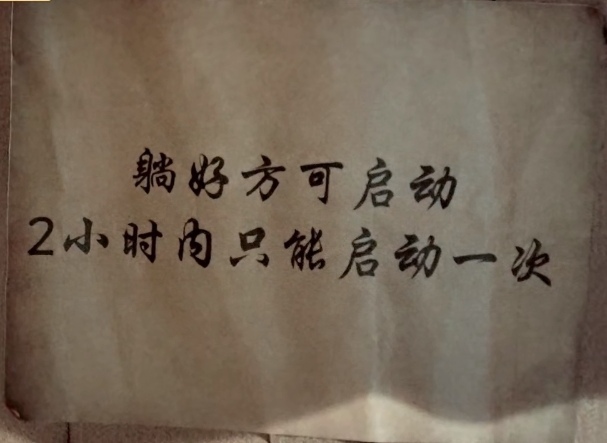 躺好方可启动
2小时内只能启动一次